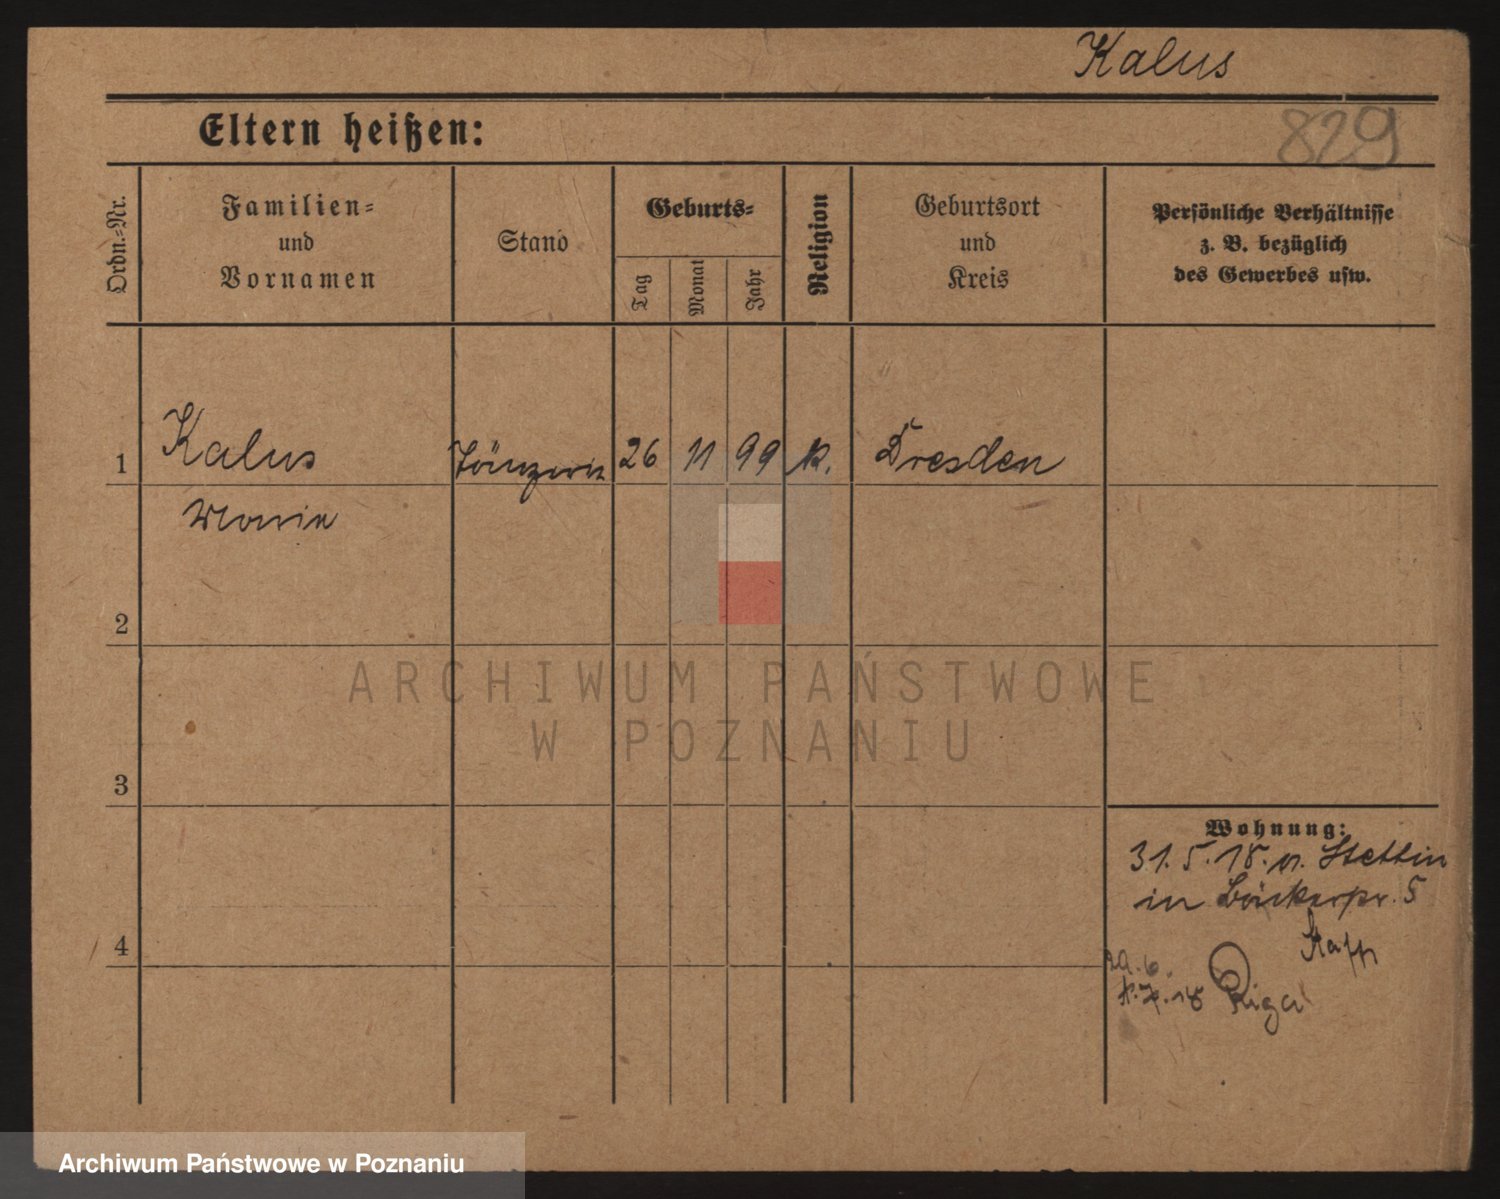 Kalus
829
Eltern heißen:
Ordn.-Nr.
Familien-
und
Vornamen
Stand
Geburts-
Tag
Monat
Jahr
Religion
Geburtsort
und
Kreis
Persönliche Verhältnisse
z. B. bezüglich
des Gewerbes usw.
1 Kalus Tänzerin 26 11 99 k. Dresden
Maria
2
ARCHIWUM PAŃSTWOWE
W POZNANIU
3
Wohnung:
31.5.18. v. Stettin
in Bäckerstr. 5
4
29.6.
18 Riga
Archiwum Państwowe w Poznaniu